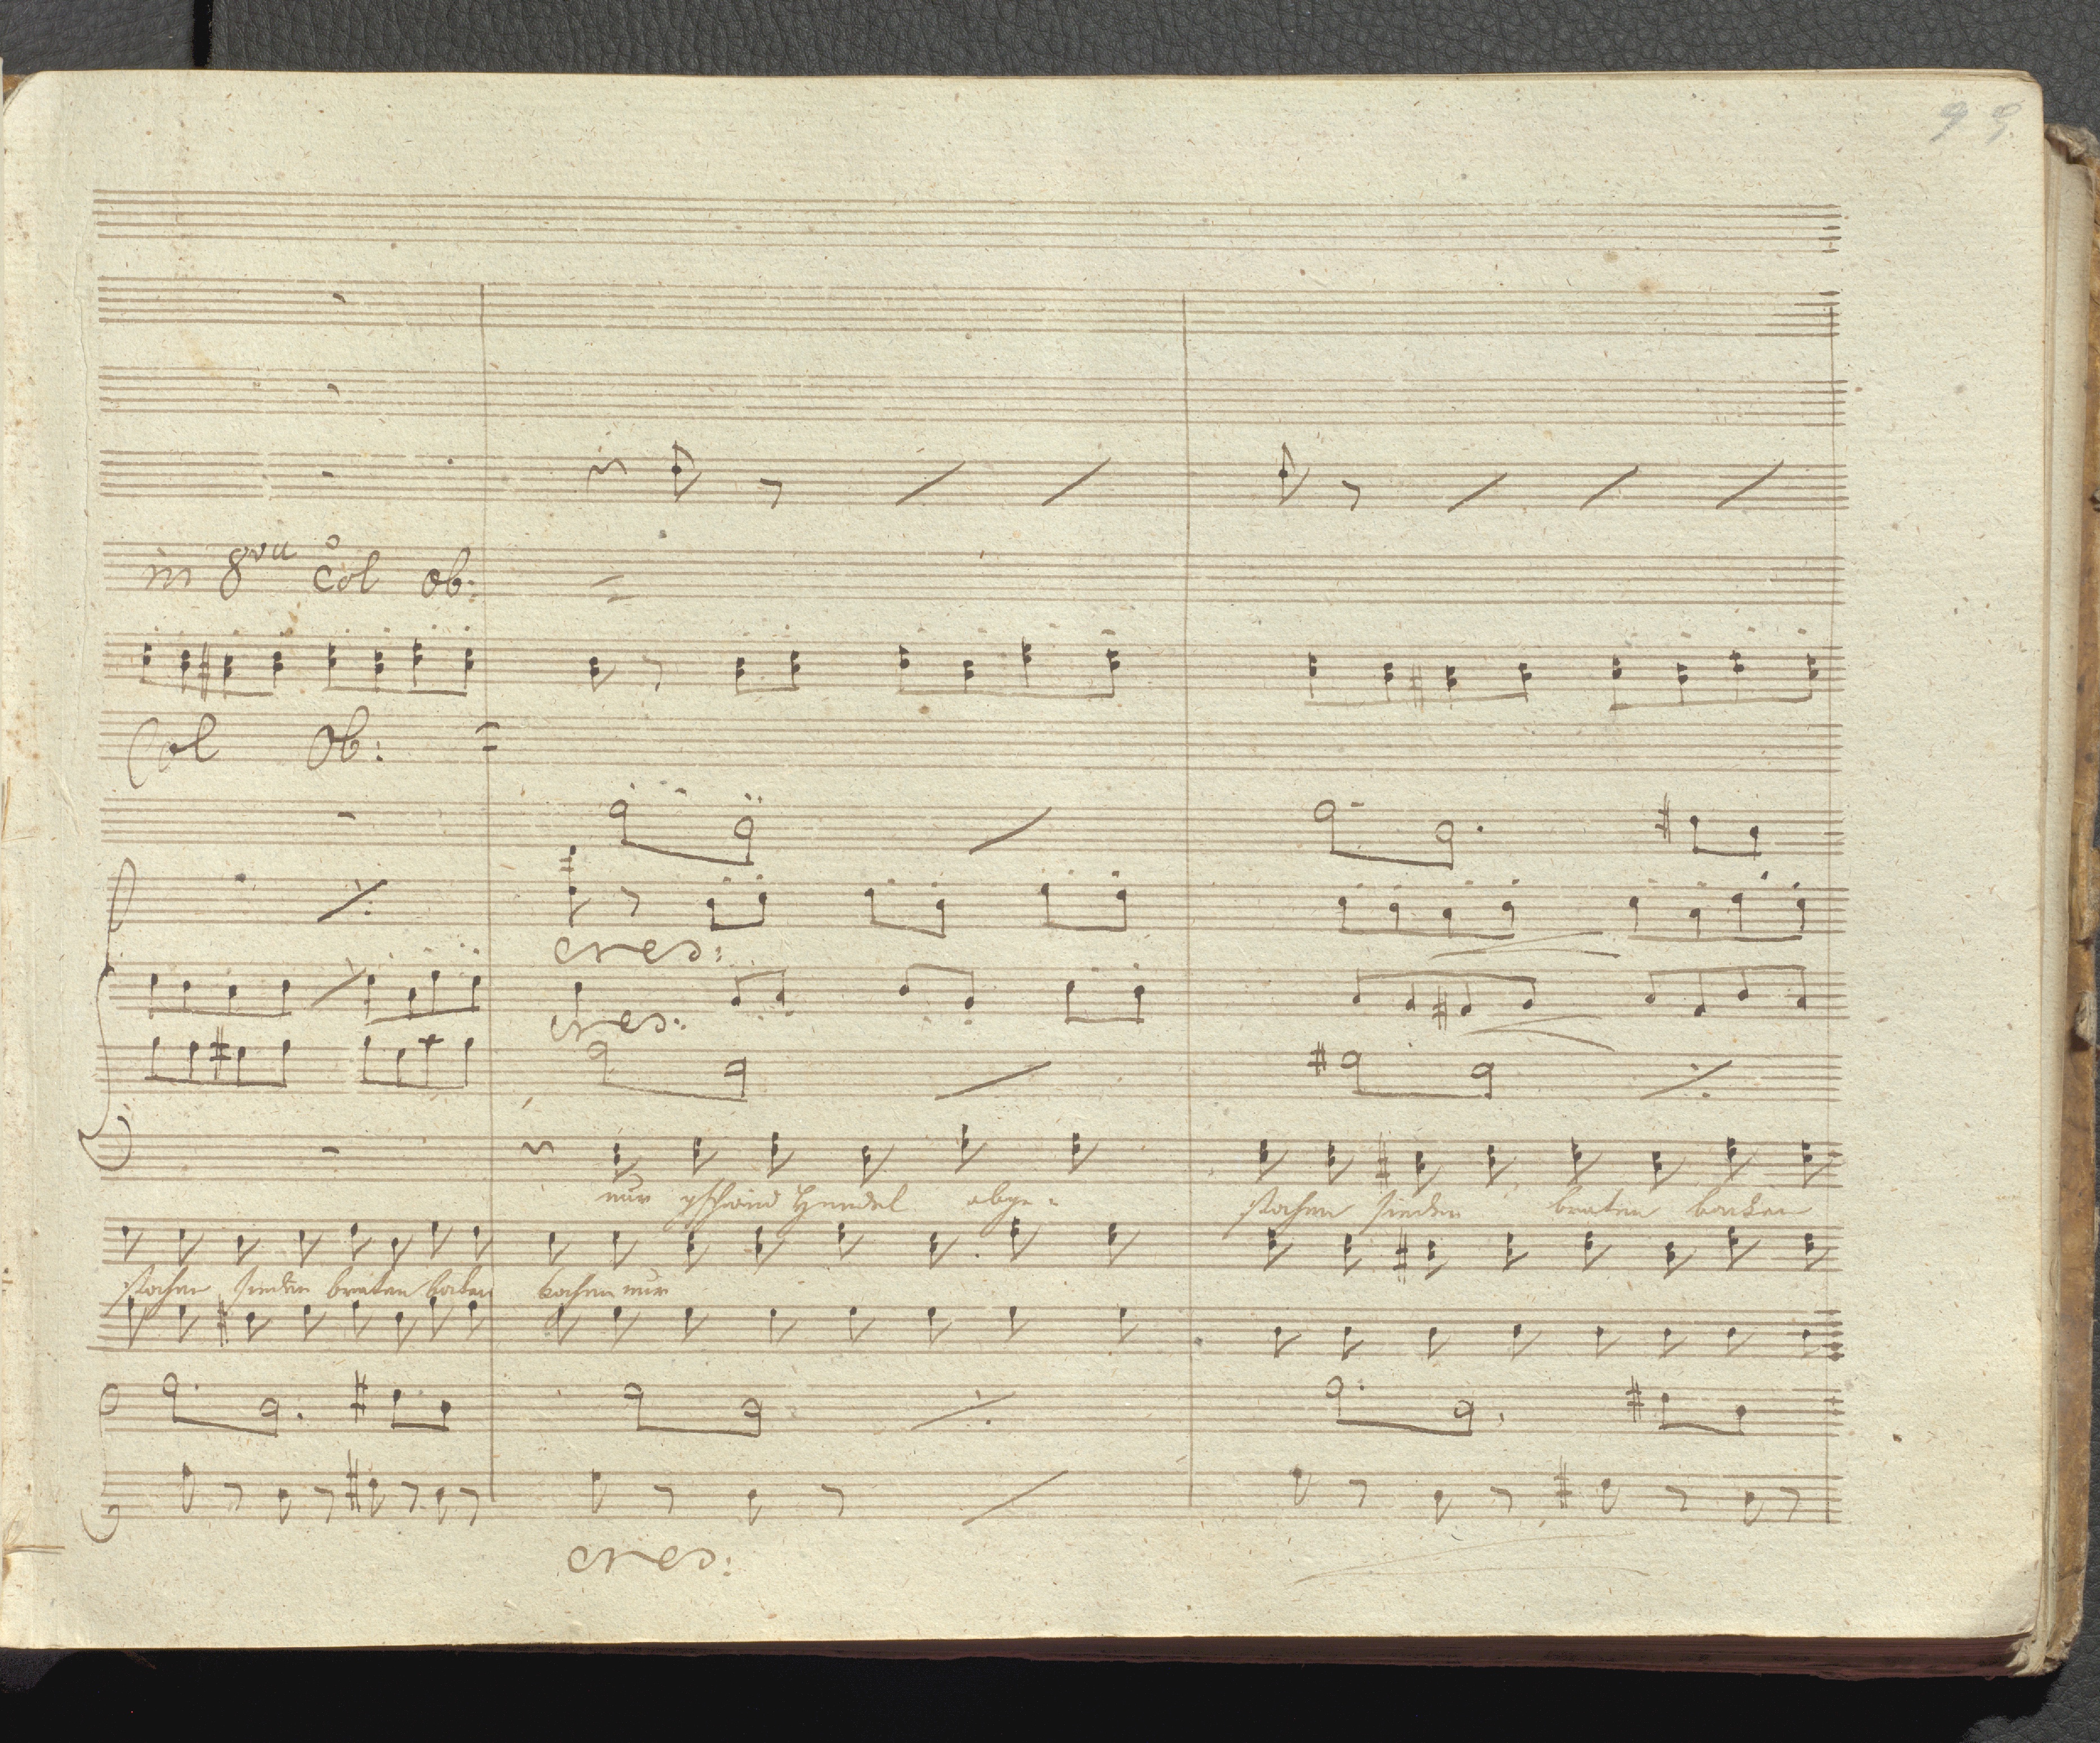 99
in 8va Col Ob:
Col Ob:
cres:
cres:
nur gschwind Hendel abge-
stochen sieden braten backen
stochen sieden braten backen kochen nur
cres: